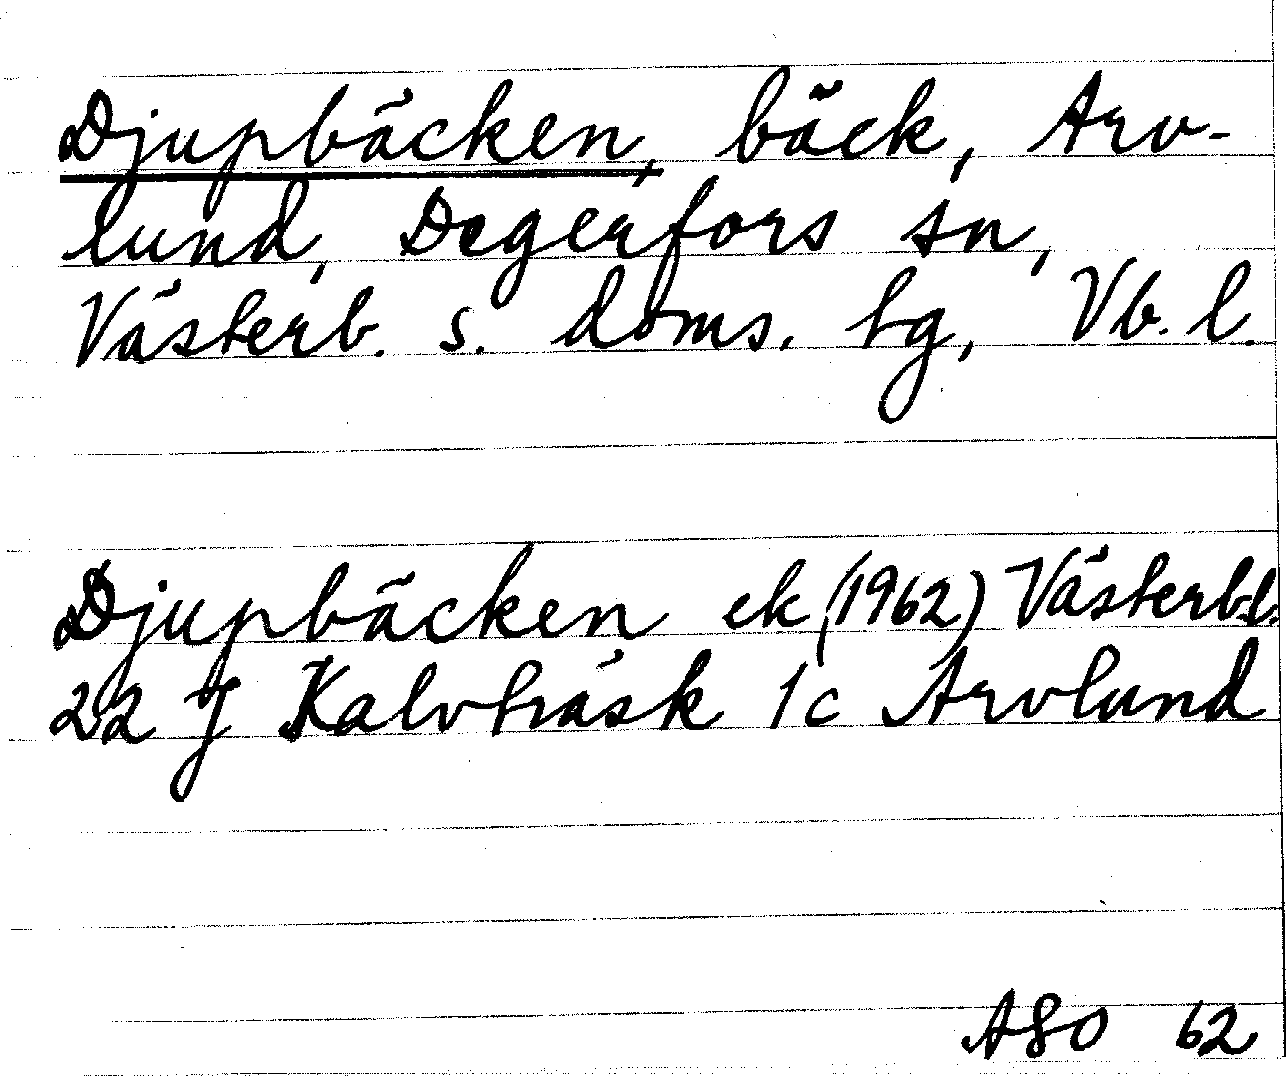 Djupbäcken, bäck, Arv-
lund, Degerfors sn,
Västerb. s. doms. tg, Vb. l.
Djupbäcken ek (1962) Västerb.l.
22 J Kalvträsk 1c Arvlund
ASO 62